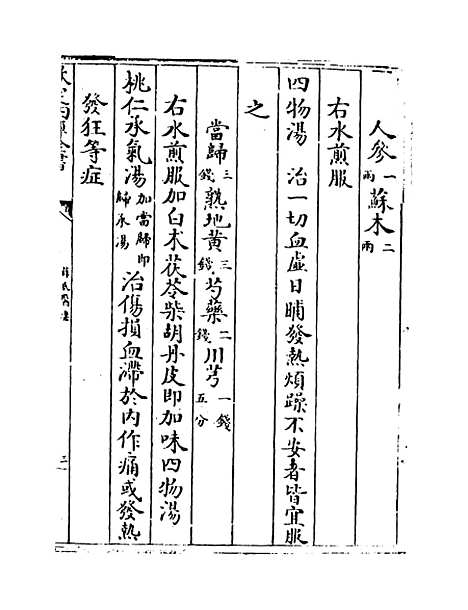 人參一兩蘇木二兩
右水煎服
四物湯　治一切血虛日晡發熱煩躁不安者皆宜服
之
當歸三錢熟地黄三錢芍藥二錢川芎一錢五分
右水煎服加白术茯苓柴胡丹皮即加味四物湯
桃仁承氣湯加當歸即歸承湯　治傷損血滯於内作痛或發熱
發狂等症
欽定四庫全書